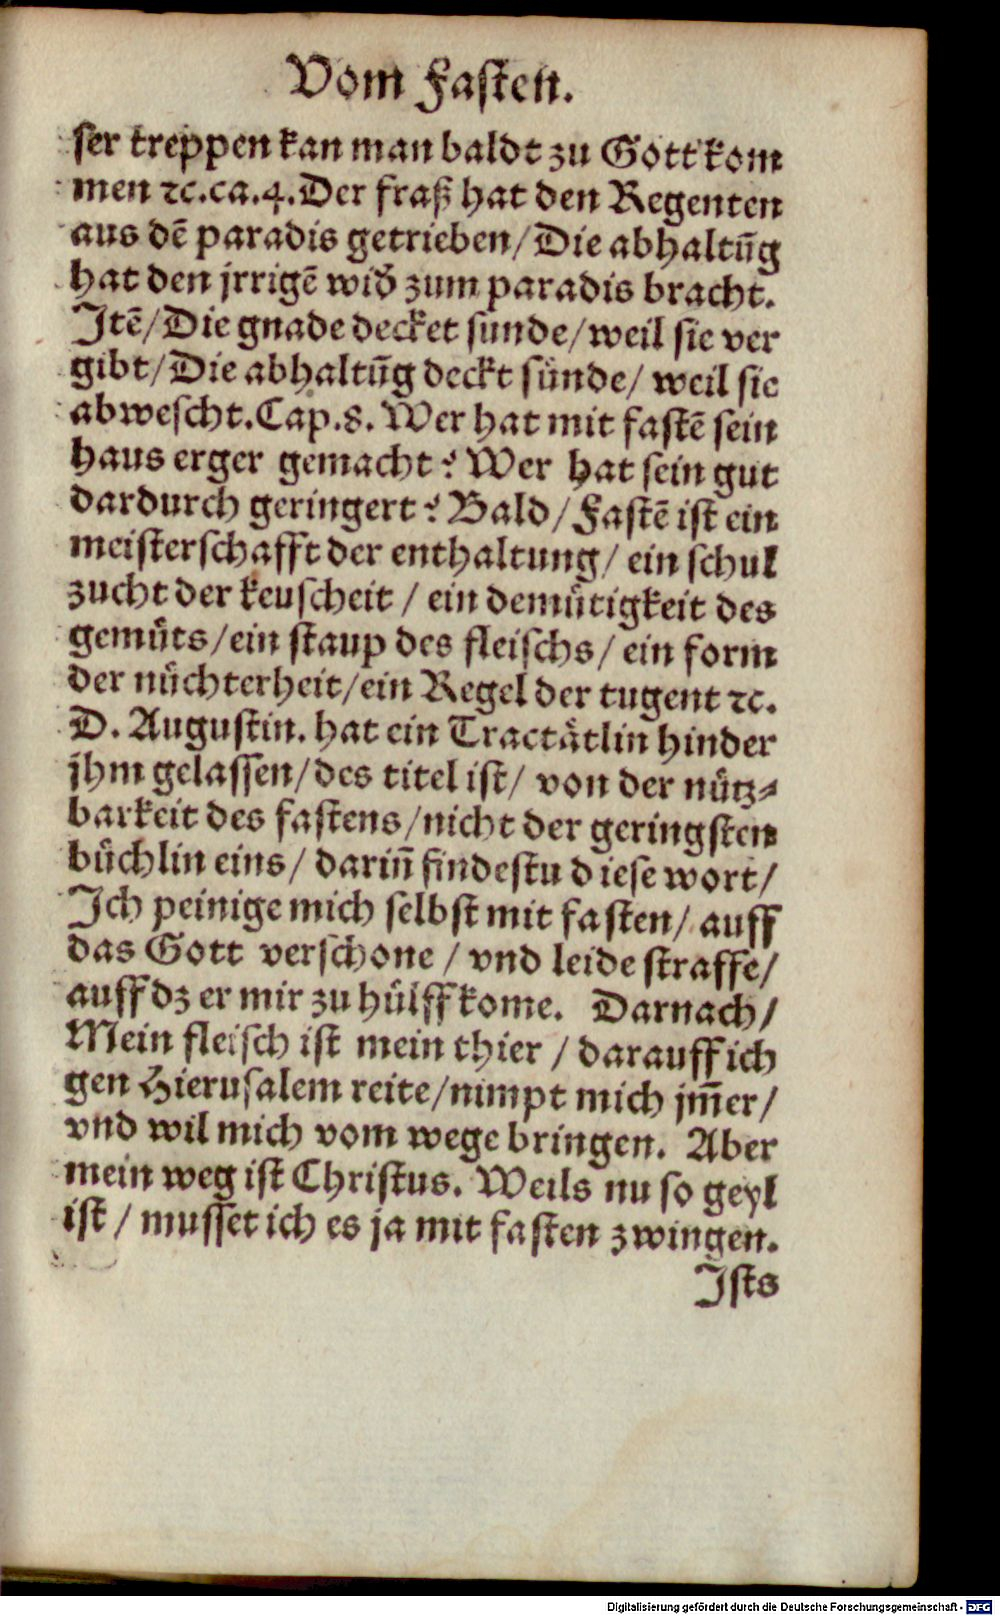 Vom Fasten.
ser treppen kan man baldt zu Gott kom
men ꝛc. ca. 4. Der fraß hat den Regenten
aus dē paradis getrieben/ Die abhaltūg
hat den jrrigē wiđ zum paradis bracht.
Jtē/ Die gnade decket sunde/ weil sie ver
gibt/ Die abhaltūg deckt sünde/ weil sie
abwescht. Cap. 8. Wer hat mit fastē sein
haus erger gemacht? Wer hat sein gut
dardurch geringert? Bald/ Fastē ist ein
meisterschafft der enthaltung/ ein schul
zucht der keuscheit / ein demütigkeit des
gemüts/ ein staup des fleischs/ ein form
der nüchterheit/ ein Regel der tugent ꝛc.
D. Augustin. hat ein Tractätlin hinder
jhm gelassen/ des titel ist/ von der nütz⸗
barkeit des fastens/ nicht der geringsten
büchlin eins/ dariñ findestu diese wort/
Jch peinige mich selbst mit fasten/ auff
das Gott verschone / vnd leide straffe/
auff dz er mir zu hülff kome. Darnach/
Mein fleisch ist mein thier / darauff ich
gen Hierusalem reite/ nimpt mich jm̄er/
vnd wil mich vom wege bringen. Aber
mein weg ist Christus. Weils nu so geyl
ist / musset ich es ja mit fasten zwingen.
Jsts
Digitalisierung gefördert durch die Deutsche Forschungsgemeinschaft - DFG